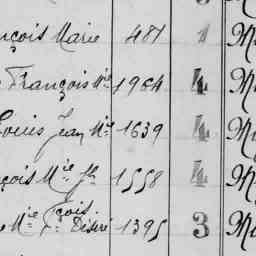 nçois Marie 481 1 M
François Mie 1964 4 M
Louis Jean Mie 1639 4 M
nçois Mie Jh 1558 4 M
Mie Fçois Désiré 1395 3 M